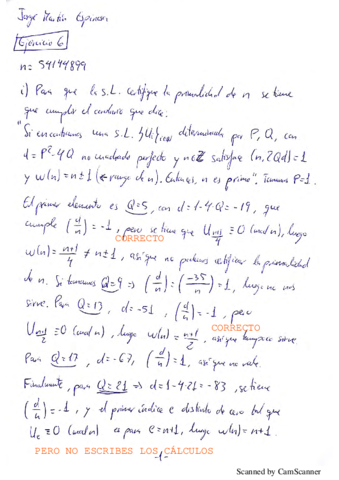 Jorge Martín Espinosa
Ejercicio 6
n = 54144899
i) Para que la S.L. certifique la primalidad de n se tiene
que cumplir el corolario que dice:
"Si encontramos una S.L. {U_i}_{i≥0} determinada por P, Q, con
d = P² - 4Q no cuadrado perfecto y n∈Z satisface (n, 2Qd) = 1
y w(n) = n ± 1 (← rango de n). Entonces, n es primo". Tomamos P = 1.
El primer elemento es Q = 5, con d = 1 - 4·Q = -19, que
cumple (d/n) = -1, pero se tiene que U_{(n+1)/4} ≡ 0 (mod n), luego
CORRECTO
w(n) = (n+1)/4 ≠ n ± 1, así que no podemos certificar la primalidad
de n. Si tomamos Q = 9 → (d/n) = (-35/n) = 1, luego no nos
sirve. Para Q = 13, d = -51, (d/n) = -1, pero
U_{(n+1)/2} ≡ 0 (mod n), luego w(n) = (n+1)/2, así que tampoco sirve.
CORRECTO
Para Q = 17, d = -67, (d/n) = 1, así que no vale.
Finalmente, para Q = 21 → d = 1 - 4·21 = -83, se tiene
(d/n) = -1, y el primer índice c distinto de cero tal que
U_c ≡ 0 (mod n) es para c = n+1, luego w(n) = n+1.
PERO NO ESCRIBES LOS CÁLCULOS
-1-
Scanned by CamScanner